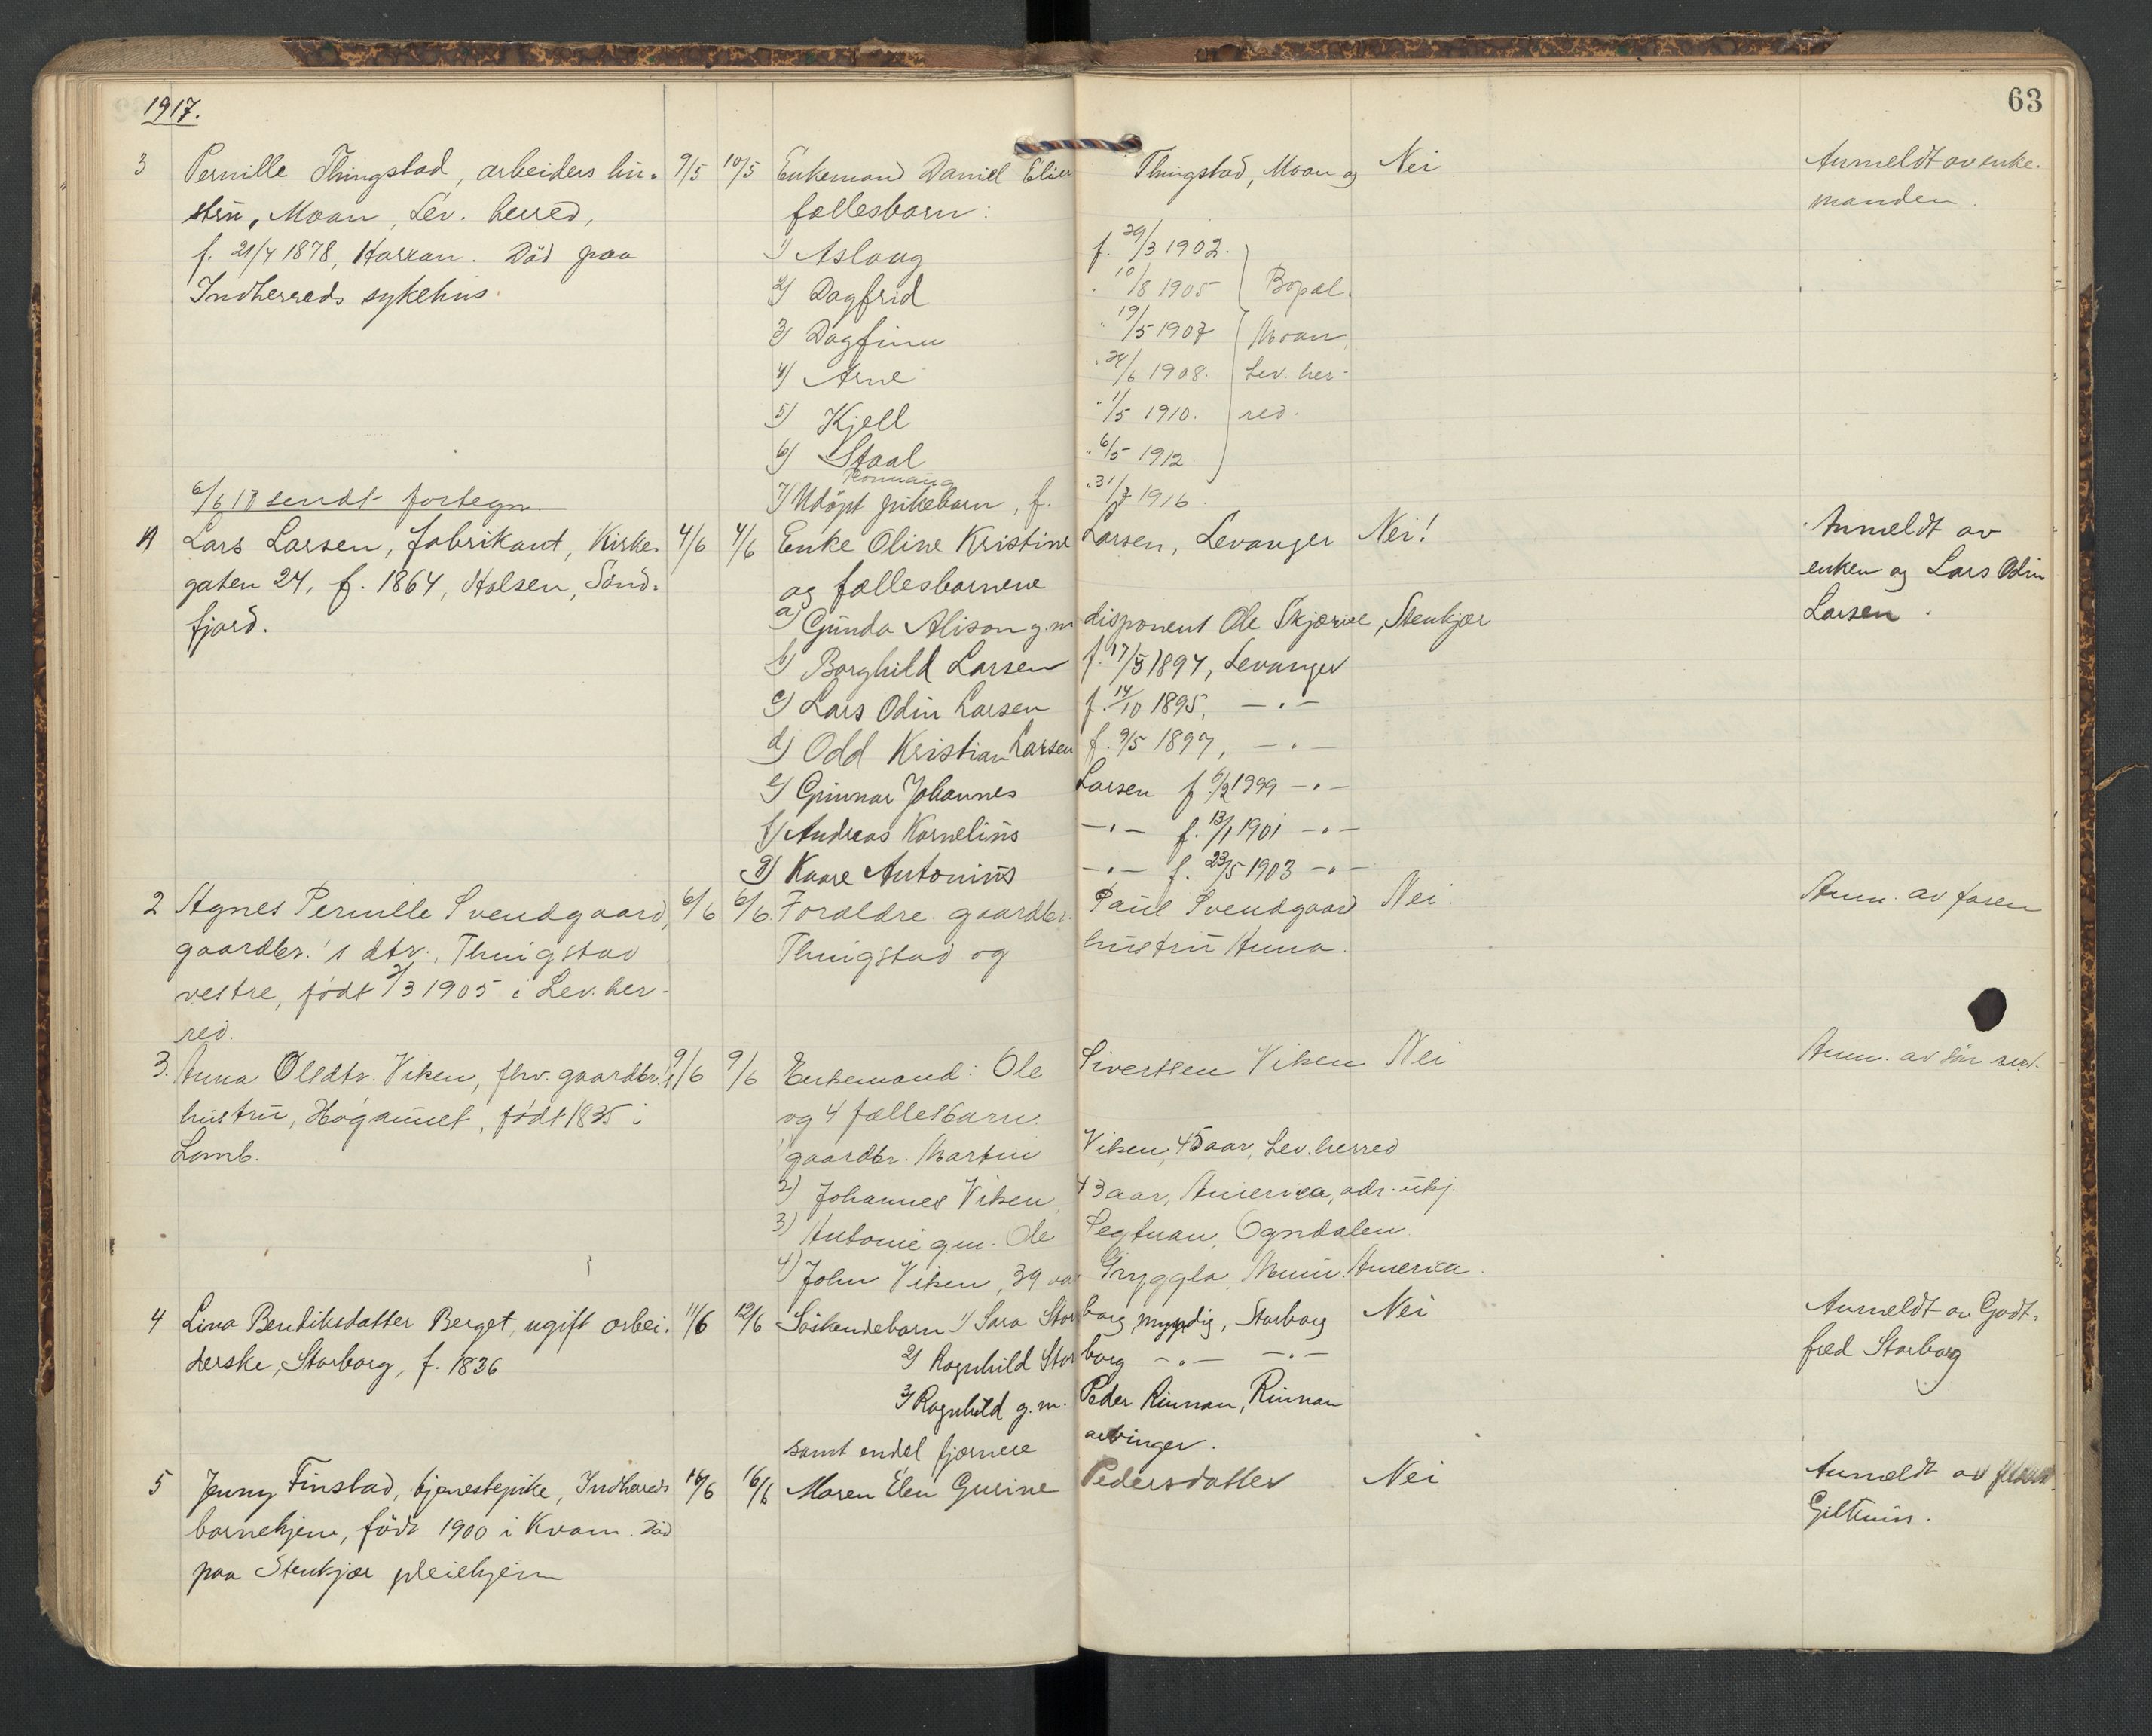 1917.
63
3 Pernille Thingstad, arbeiders hu- 9/5 10/5 Enkemand Daniel Elias Thingstad, Moan og Nei Anmeldt av enke-
stru, Moan, Lev. herred, fællesbarn: manden.
f. 21/4 1878, Karxan. Död paa 1) Aslaug f. 29/3 1902.
Indherreds sykehus. 2) Dagfrid " 10/8 1905 Bopæl.
3) Dagfinn " 19/5 1907 Moan,
4) Arne " 24/6 1908. Lev. her-
5) Kjell " 1/5 1910. red.
6) Staal " 6/5 1912.
Ronnaug
6/6 17 sendt fortegn. 7) Udöpt pikebarn, f. " 31/7 1916.
1 Lars Larsen, fabrikant, Kirke- 4/6 4/6 Enke Oline Kristine Larsen, Levanger Nei! Anmeldt av
gaten 24, f. 1864, Holsen, Sönd- og fællesbarnene enken og Lars Odin
fjord. a) Gunda Alison g.m. disponent Ole Skjærve, Stenkjær Larsen.
b) Borghild Larsen f. 17/5 1894, Levanger
c) Lars Odin Larsen f. 14/10 1895, —"—
d) Odd Kristian Larsen f. 9/5 1897, —"—
e) Gunnar Johannes Larsen f. 6/2 1899 —"—
f) Andreas Kornelius —"— f. 13/1 1901 —"—
g) Kaare Antonius —"— f. 23/5 1903 —"—
2 Agnes Pernille Svendgaard, 6/6 6/6 Forældre gaardbr. Paul Svendgaard Nei Anm. av faren
gaardbr.'s dtr., Thingstad Thingstad og hustru Anna.
vestre, født 2/3 1905 i Lev. her-
red.
3. Anna Olsdtr. Viken, fhv. gaardbr.'s 9/6 9/6 Enkemand: Ole Sivertsen Viken Nei Anm. av
hustru, Høgaunet, født 1835 i og 4 fællesbarn.
Lomb. gaardbr. Martin Viken, 45 aar, Lev. herred
2) Johannes Viken, 43 aar, Amerika, adr. ukj.
3) Antonie g.m. Ole Segtnan, Ogndalen
4) John Viken, 39 aar Gryggla, Minn. America.
4 Lina Bendiksdatter Berget, ugift arbei- 11/6 12/6 Söskendebarn 1) Sara Storborg, myndig, Storborg Nei Anmeldt av Godt-
derske, Storborg, f. 1836 2) Ragnhild Storborg —"— —"— fred Storborg
3) Ragnhild g.m. Peder Rinnan, Rinnan
samt endel fjernere arvinger.
5 Jenny Finstad, tjenestepike, Indherreds 15/6 16/6 Maren Elen Gurine Pedersdatter Nei Anmeldt av
barnehjem, född 1900 i Kvam. Död Giltnin.
paa Stenkjær pleiehjem